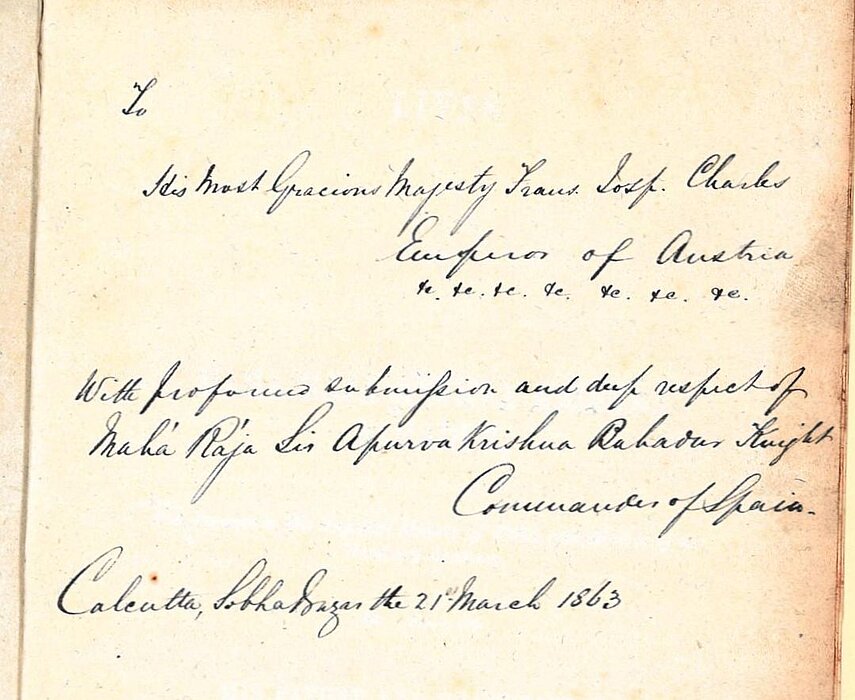 To
His Most Gracious Majesty Frans. Josf. Charles
Emperor of Austria
&c. &c. &c. &c. &c. &c. &c.
With profound submission and deep respect of
Mahá Rája Sir Apurva Krishna Bahadur Knight
Commander of Spain.
Calcutta, Sobhabazar the 21st March 1863